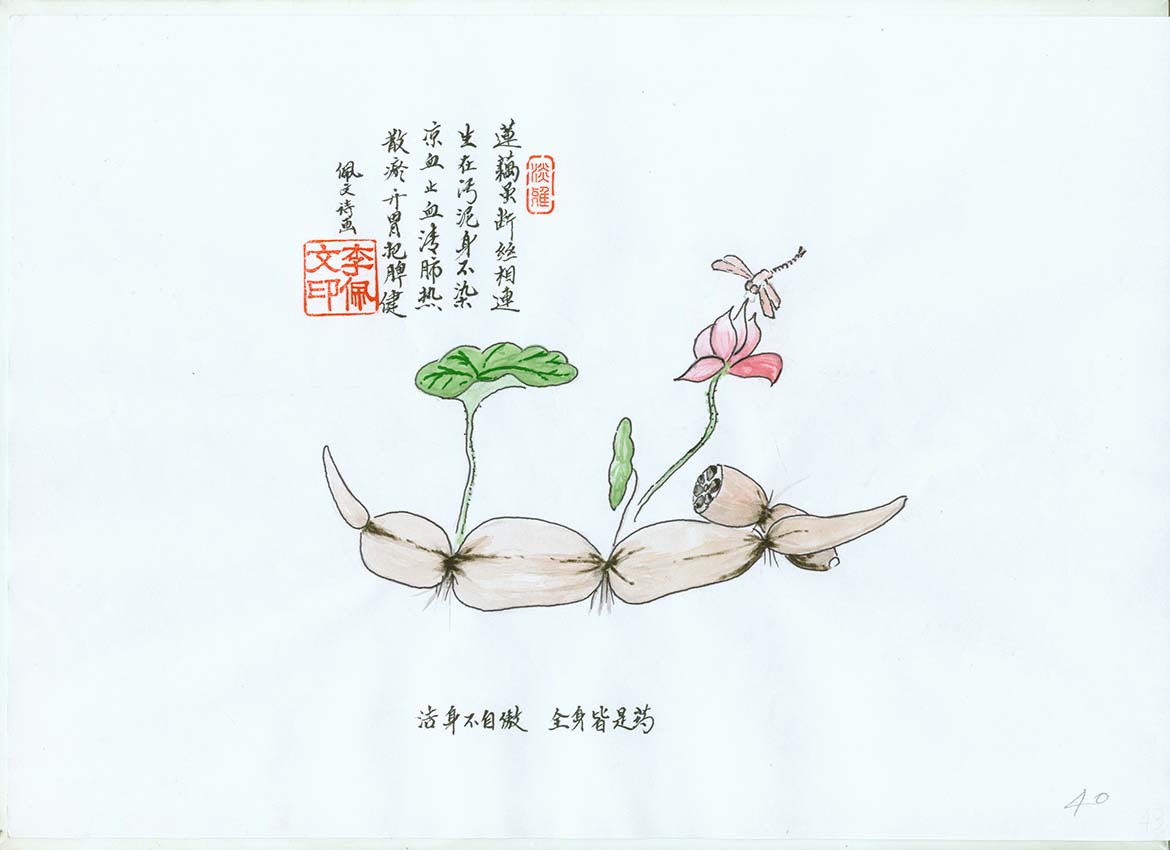 淡雅
蓮藕虽断丝相連
生在污泥身不染
凉血止血清肺热
散瘀开胃把脾健
佩文诗画
李佩文印
洁身不自傲 全身皆是药
40